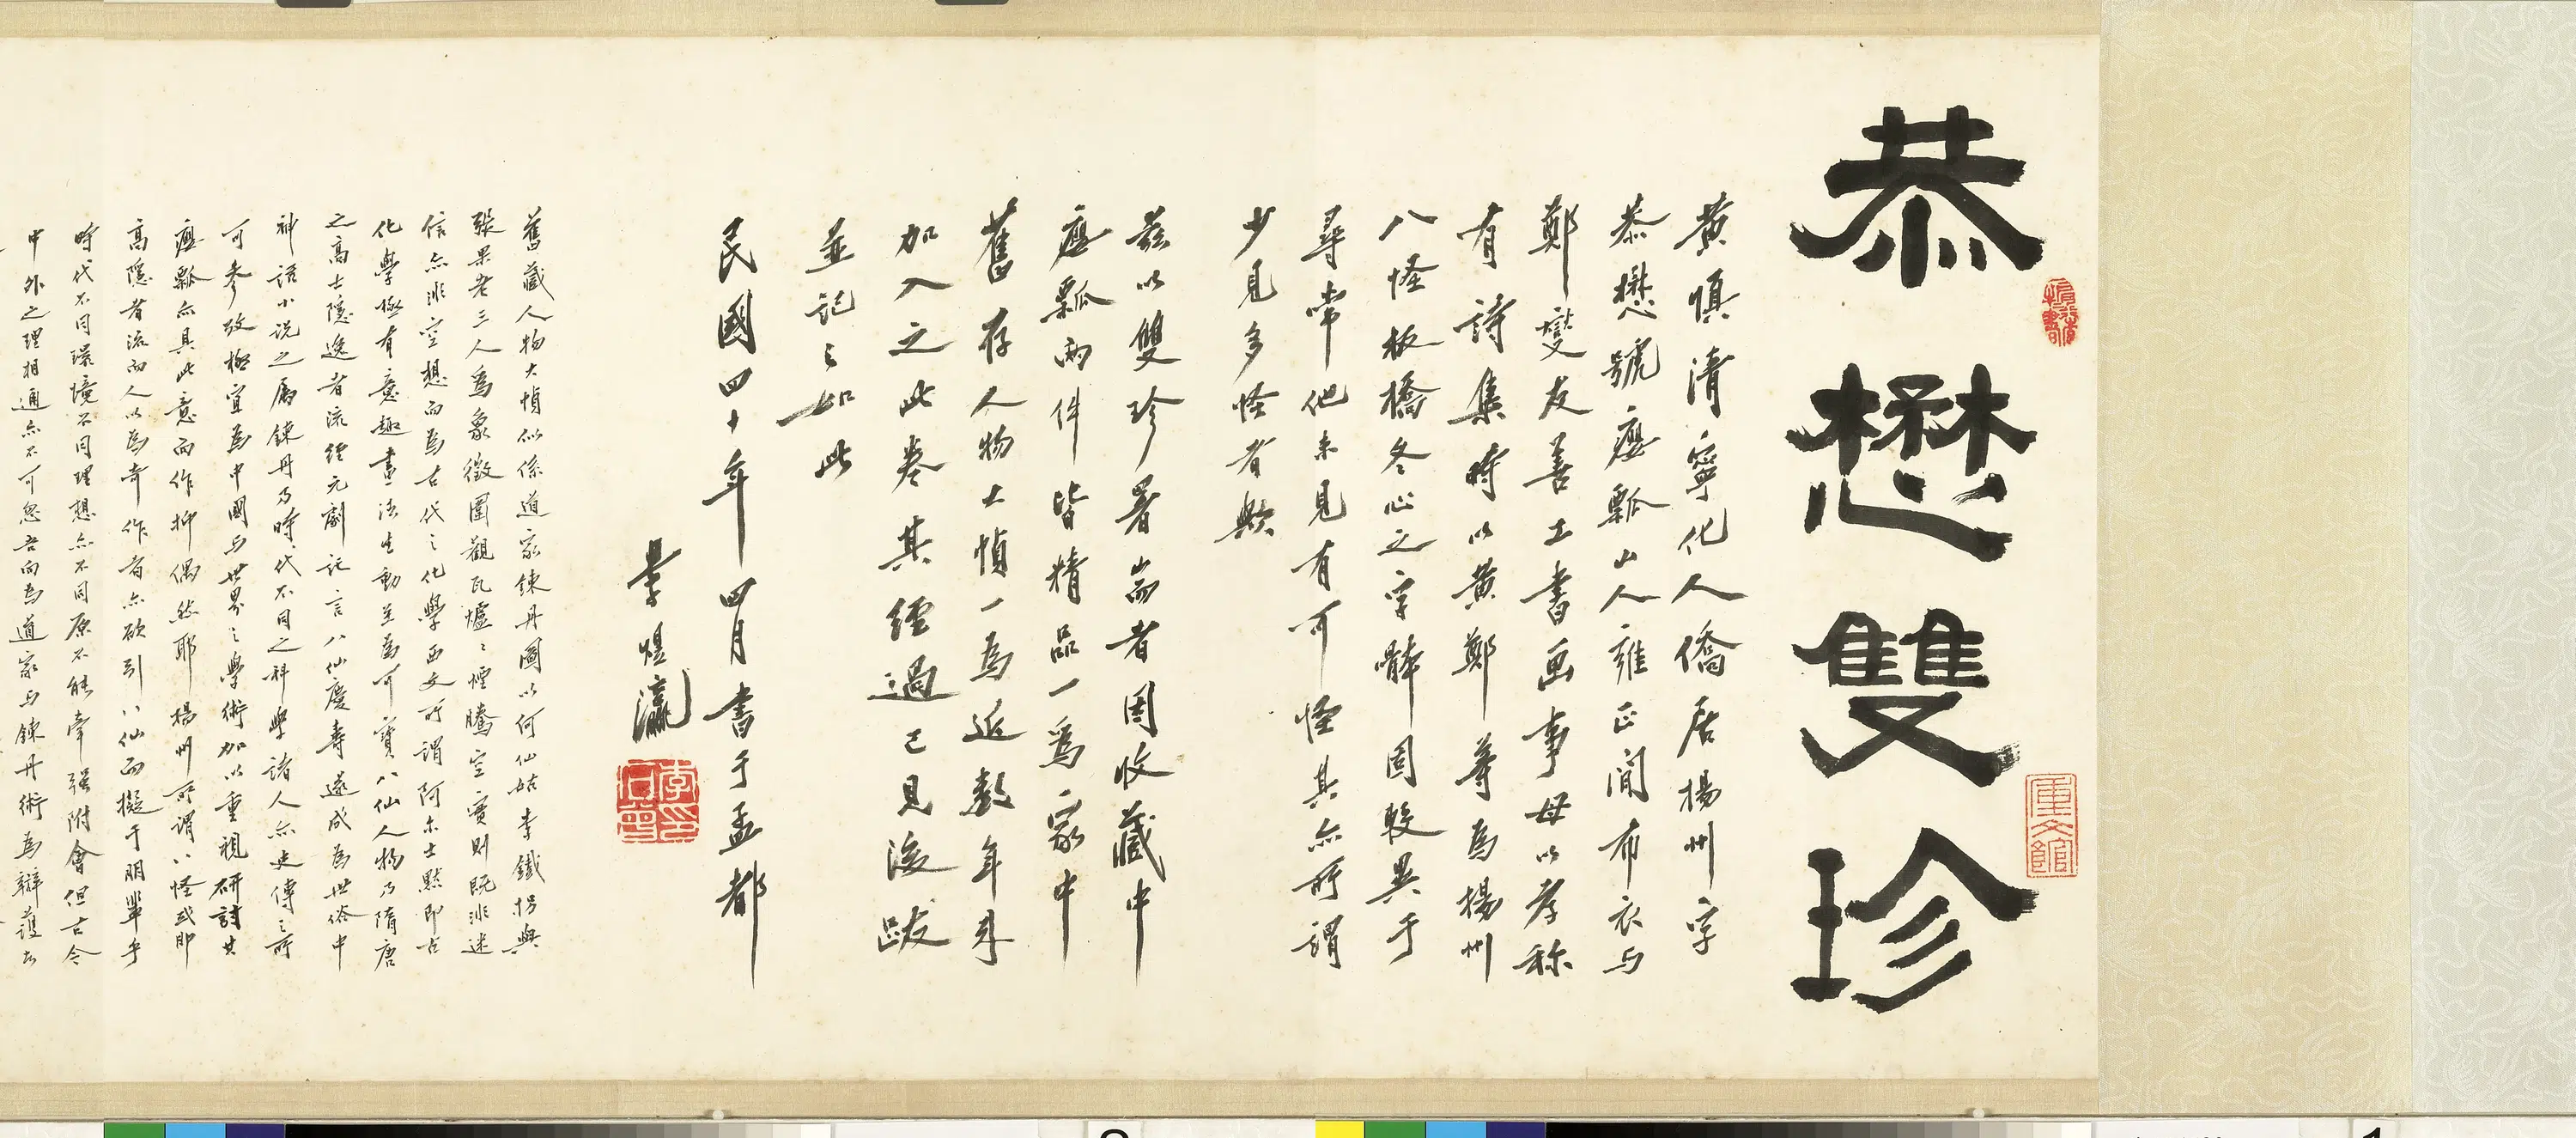 恭懋雙珍
黃慎清寧化人僑居揚州字
恭懋號癭瓢山人雍正間布衣与
鄭燮友善工書画事母以孝称
有詩集時以黃鄭等為揚州
八怪板橋冬心之字體固較異于
尋常他未見有可怪其亦所謂
少見多怪者歟
茲以雙珍署耑者因收藏中
癭瓢兩件皆精品一為家中
舊存人物大幀一為近數年来
加入之此卷其經過已見後跋
並記之如此
民國四十年四月書于孟都
李煜瀛
舊藏人物大幀似係道家鍊丹圖以何仙姑李鐵拐與
張果老三人為象徵圍觀瓦爐爐煙騰空實則既非迷
信亦非空想而為古代之化學西文所謂阿尔士默即古
化學極有意趣畫法生動至為可寶八仙人物乃隋唐
之高士隱逸者流經元劇託言八仙慶壽遂成為世俗中
神話小说之屬鍊丹乃時代不同之科學諸人亦史傳之所
可參攷極宜為中國与世界之學術加以重視研討其
癭瓢亦具此意而作抑偶然耶揚州所謂八怪或即
高隱者流而人以為奇作者亦欲引八仙而擬于朋輩乎
時代不同環境不同理想亦不同原不能牽强附會但古今
中外之理相通亦不可忽吾向為道家与鍊丹術為辯護去